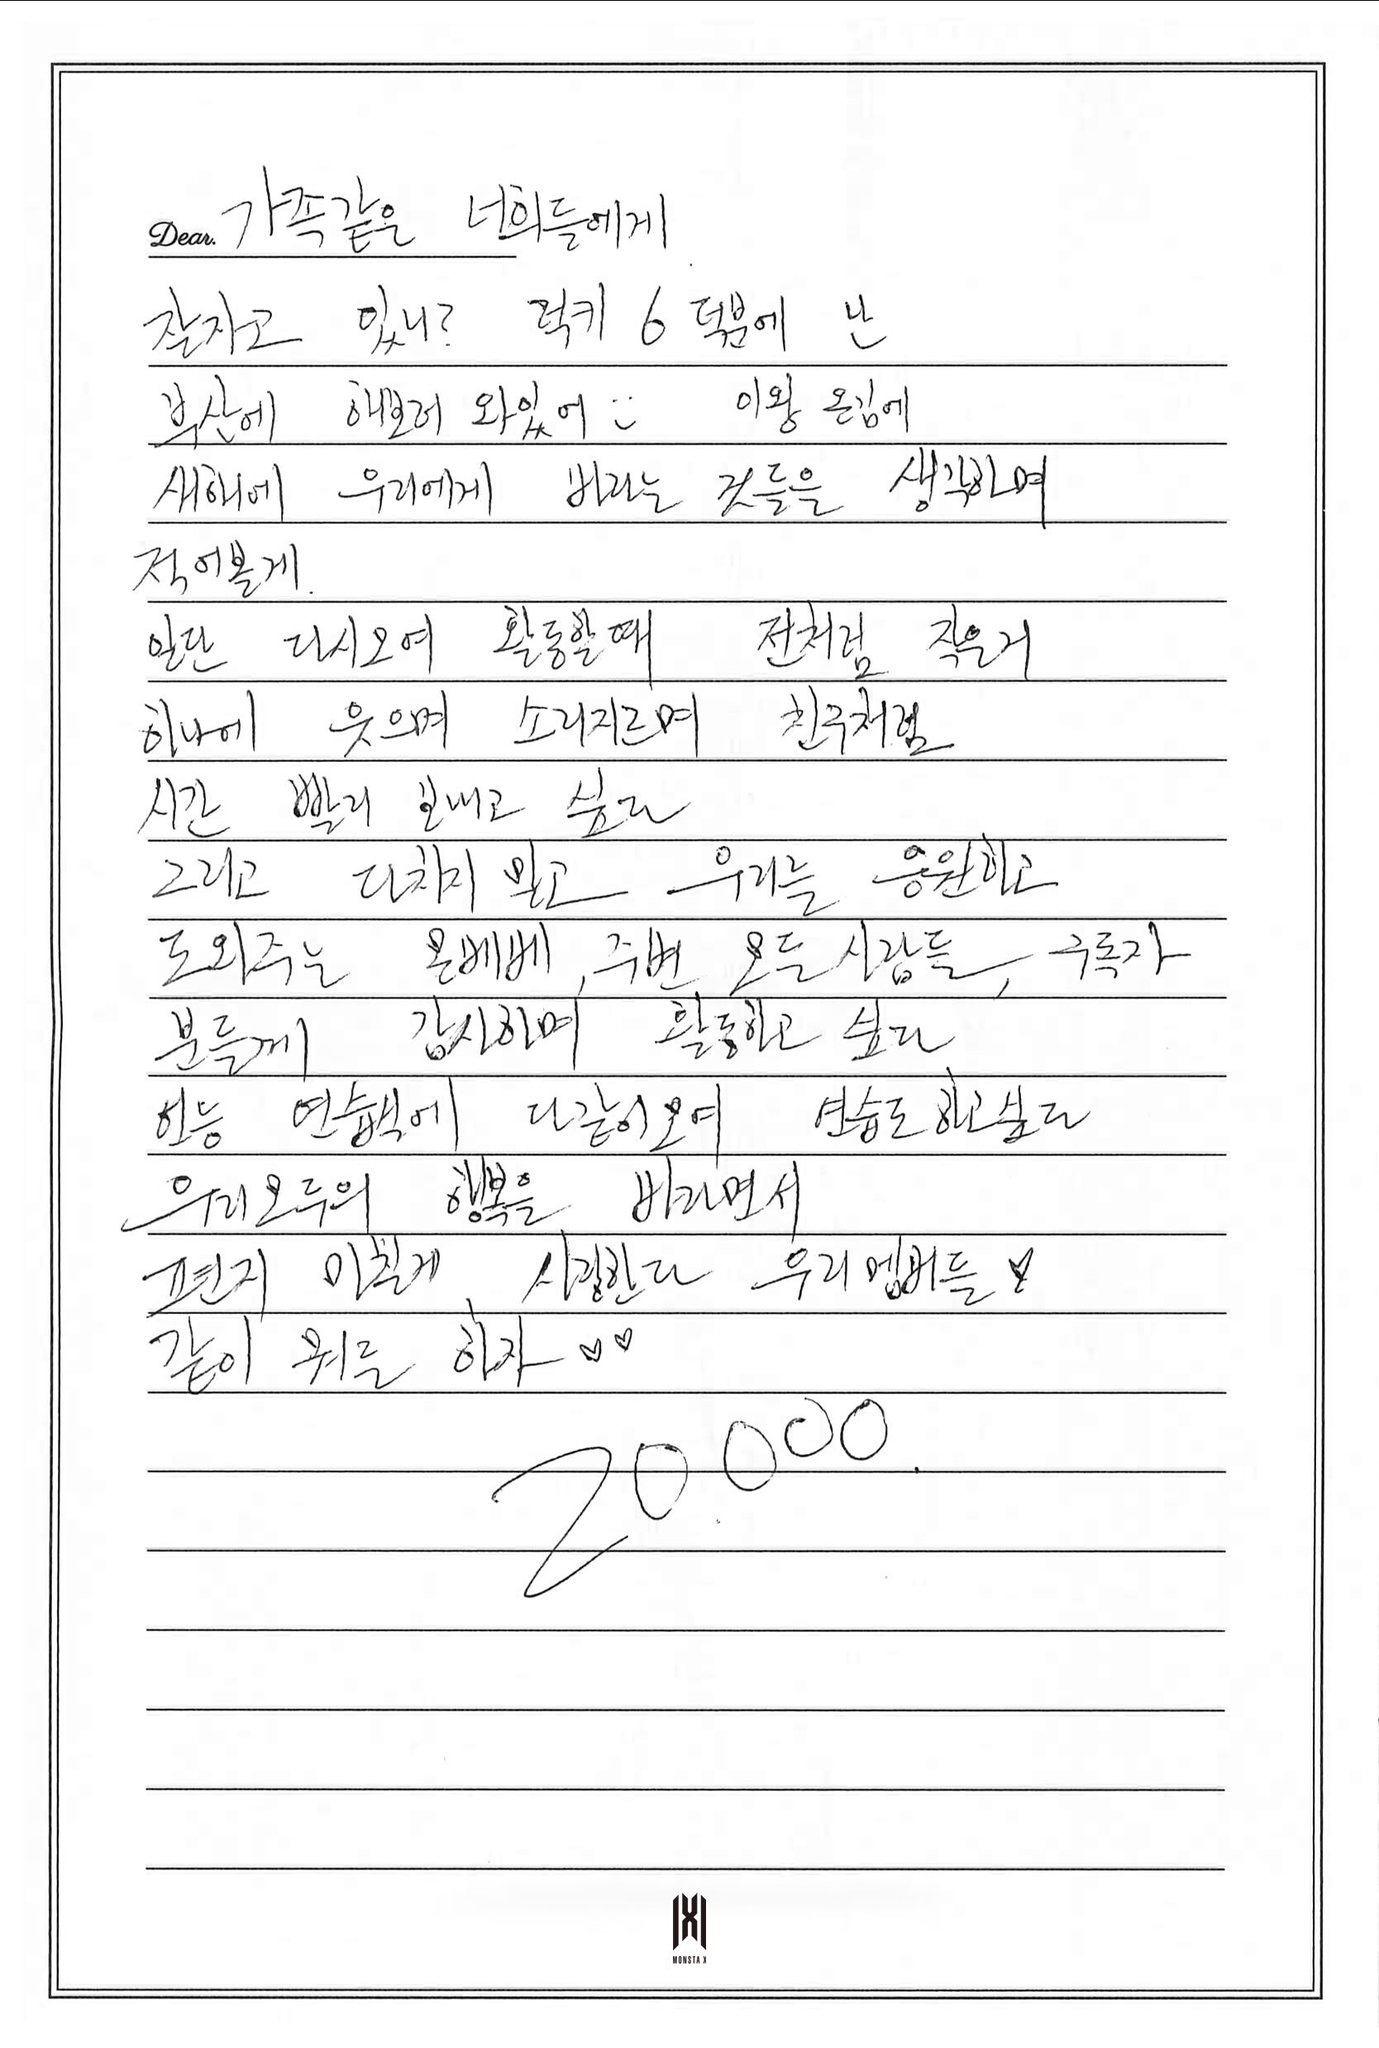 Dear. 가족같은 너희들에게
잘자고 있니? 럭키 6 덕분에 난
부산에 해보러 와있어 이왕 온김에
새해에 우리에게 바라는 것들을 생각하며
적어볼게.
일단 다시모여 활동할때 전처럼 작은거
하나에 웃으며 소리지르며 친구처럼
시간 빨리 보내고 싶다
그리고 다치지 말고 우리를 응원하고
도와주는 몬베베, 주변 모든 사람들, 구독자
분들께 감사하며 활동하고 싶다
연습실에 다같이모여 연습도하고싶다
우리모두의 행복을 바라면서
편지 마칠게 사랑한다 우리멤버들 ♥
같이 뭐든 하자 ♥♥
20000.
MONSTA X